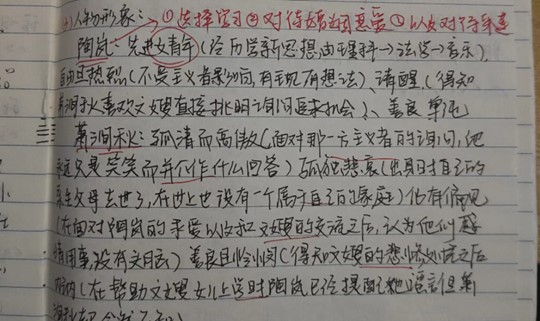 (4)人物形象: → ①选择学习 ②对待婚姻恋爱 ③以及对待革命
陶岚:先进女青年(经历学新思想由理科→法学→音乐)、
自由且热烈(不受主义者影响,有主见有想法)、清醒(得知
萧涧秋喜欢文嫂直接挑明询问要求机会)、善良 单纯
萧涧秋:孤清而高傲(面对那一方主义者的询问,他
永远只是笑笑而并不作什么回答)孤寂悲哀(出身时自己的
亲生父母去世了,在世上也没有一个属于自己的家庭)
(在面对陶岚的求爱以及和文嫂的交流之后,认为他们感
情用事没有文明)善良且怜悯(得知文嫂的悲惨处境之后
(在帮助文嫂女儿上学时陶岚已经提醒她谣言但萧